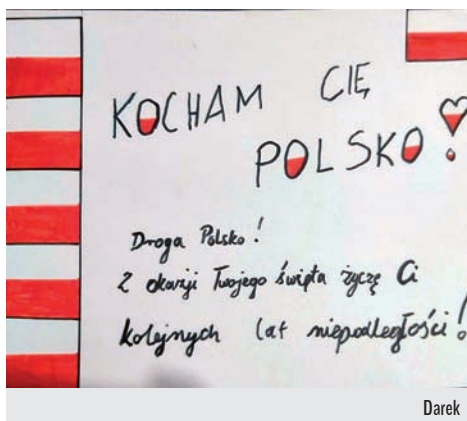 KOCHAM CIĘ
POLSKO!
Droga Polsko!
Z okazji Twojego święta życzę Ci
kolejnych lat niepodległości!
Darek